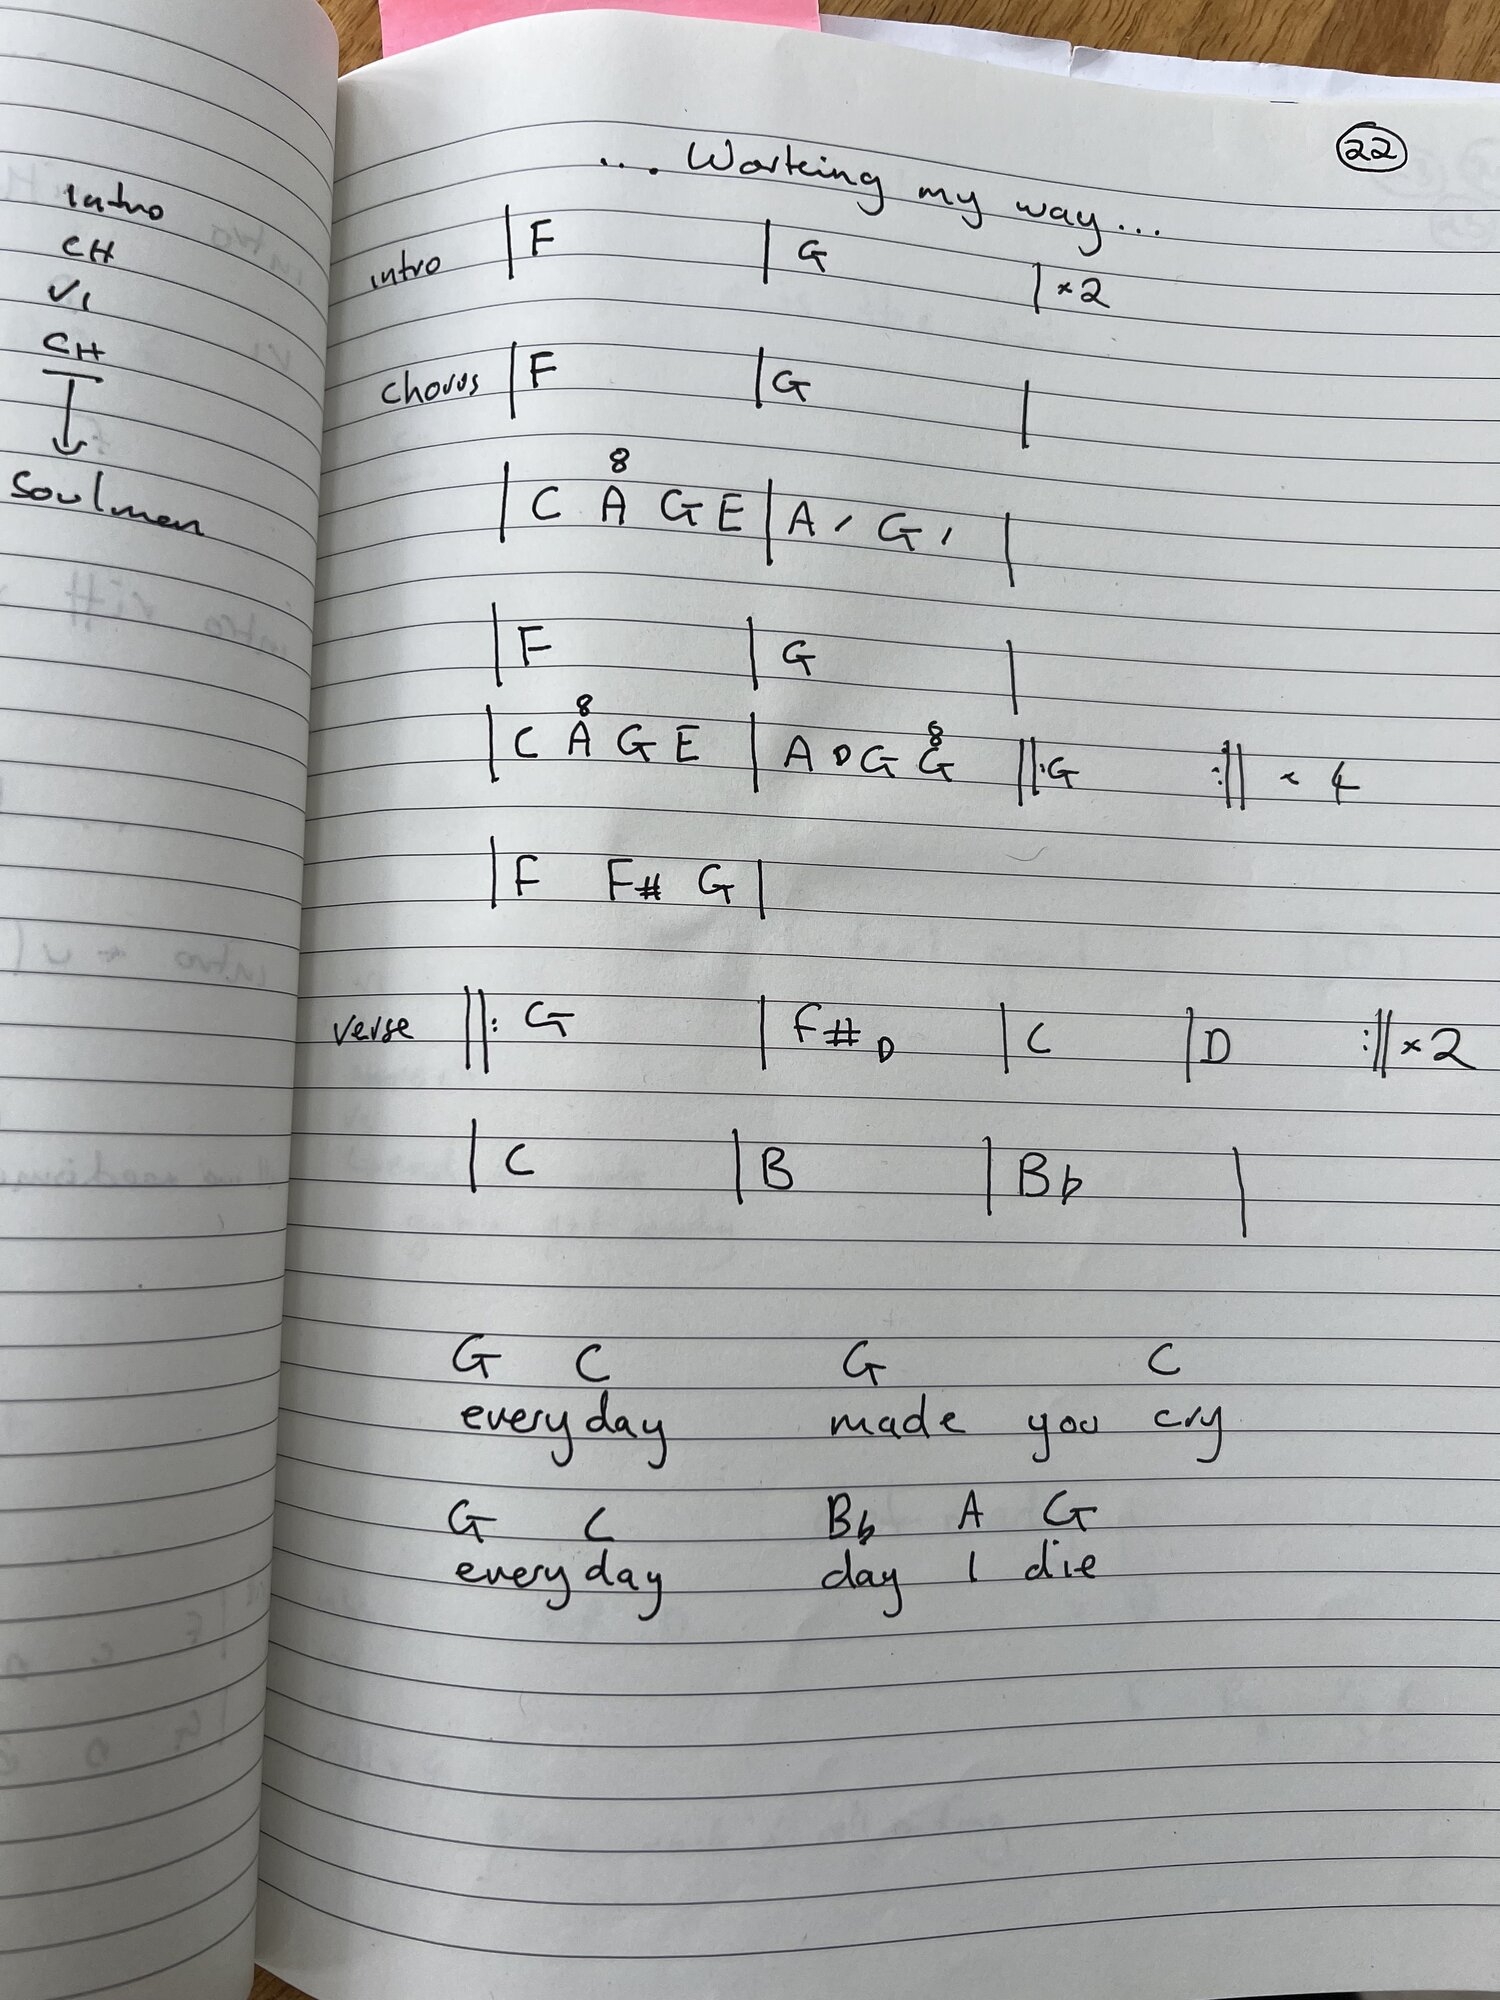 Intro
CH
V1
CH
Soulmen
22
... Working my way...
intro | F | G | x2
Chorus | F | G |
8
| C A G E | A / G / |
| F | G |
8 8
| C A G E | A D G G ||: G :|| x 4
| F F# G |
verse ||: G | F# D | C | D :|| x2
| C | B | Bb |
G C G C
everyday made you cry
G C Bb A G
everyday day I die